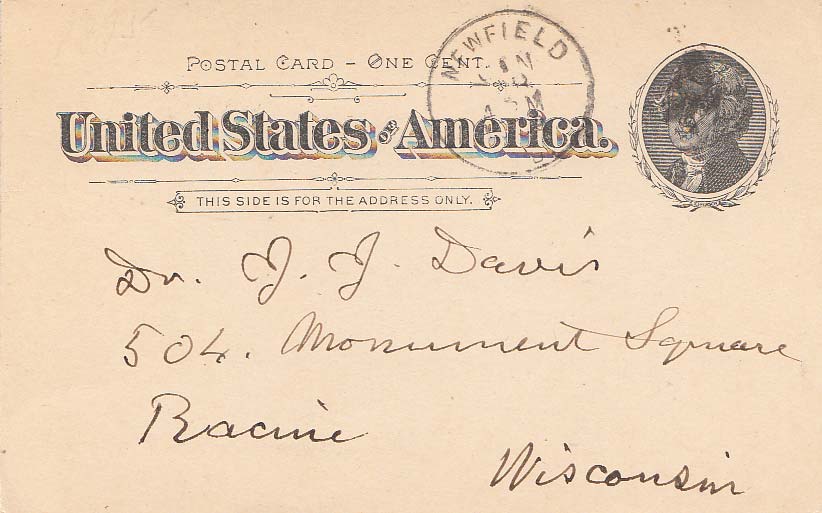 POSTAL CARD - ONE CENT.
United States of America.
THIS SIDE IS FOR THE ADDRESS ONLY.
NEWFIELD
Dr. J. J. Davis
504. Monument Square
Racine
Wisconsin